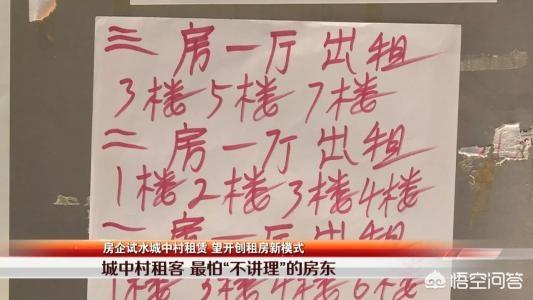 三房一厅出租
3楼5楼7楼
二房一厅出租
1楼2楼3楼4楼
房企试水城中村租赁 望开创租房新模式
城中村租客 最怕“不讲理”的房东
悟空问答